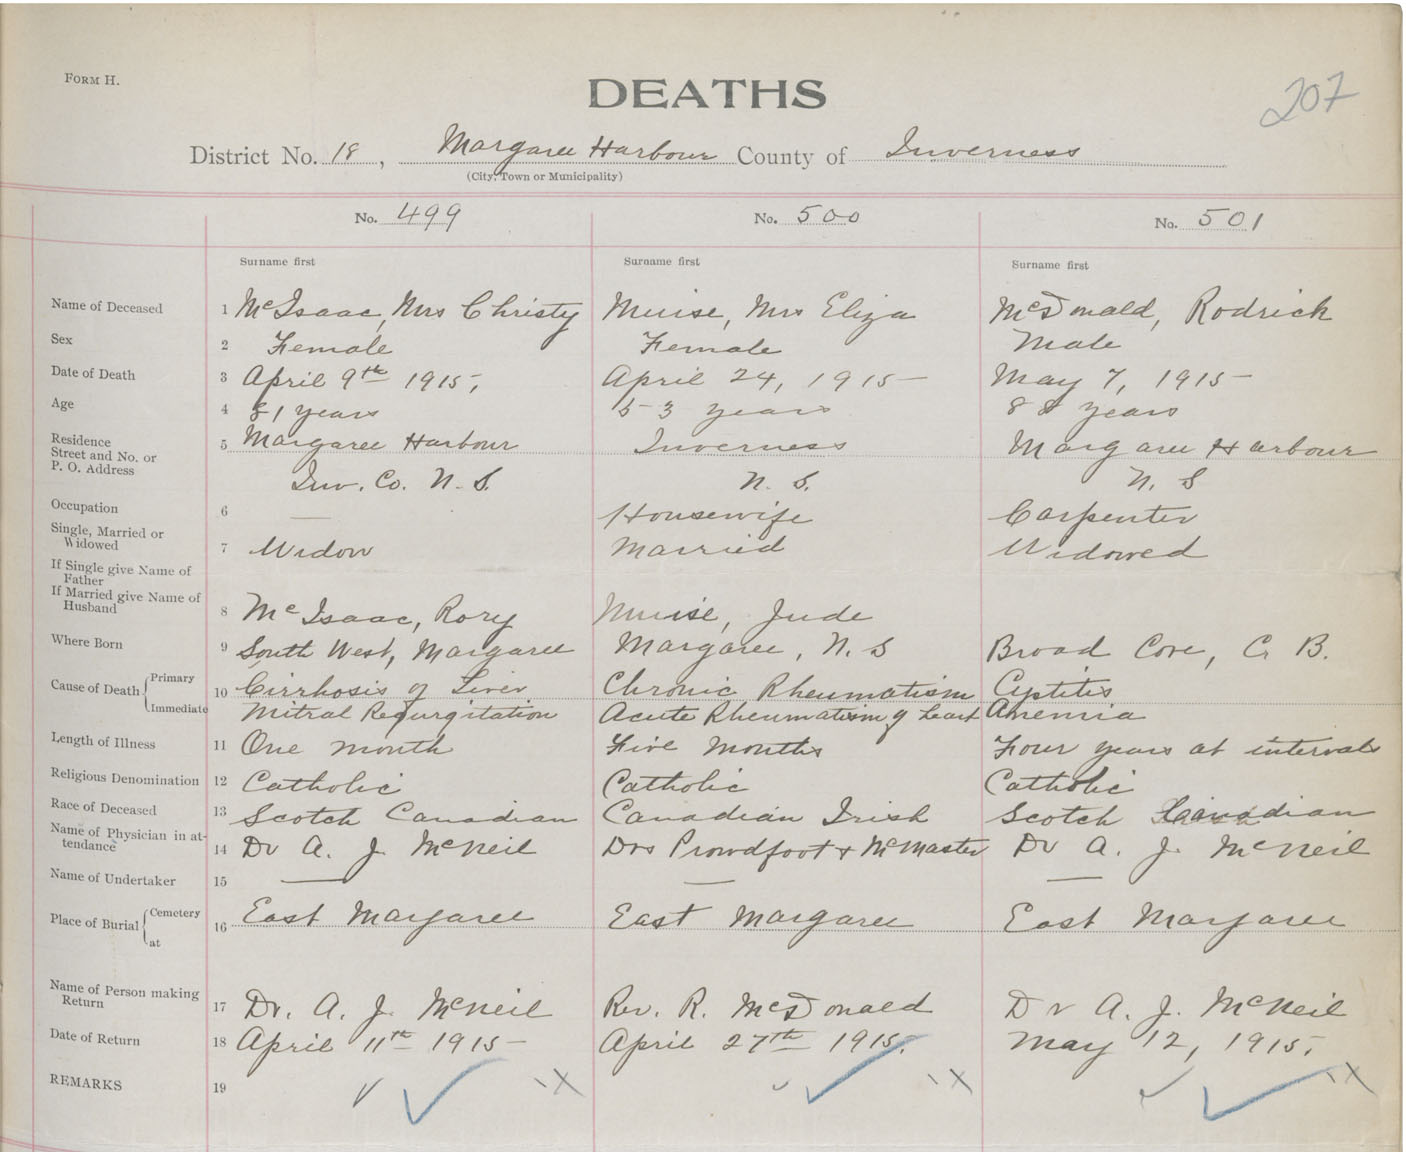 FORM H.
DEATHS
207
District No. 18, Margaree Harbour County of Inverness
(City, Town or Municipality)
No. 499 No. 500 No. 501
Surname first Surname first Surname first
Name of Deceased 1 McIsaac, Mrs Christy Muise, Mrs Eliza McDonald, Rodrick
Sex 2 Female Female Male
Date of Death 3 April 9th 1915, April 24, 1915 May 7, 1915
Age 4 81 years 53 years 88 years
Residence Street and No. or P. O. Address 5 Margaree Harbour Inverness Margaree Harbour
Inv. Co. N. S. N. S. N. S
Occupation 6 — Housewife Carpenter
Single, Married or Widowed 7 Widow Married Widowed
If Single give Name of Father
If Married give Name of Husband 8 McIsaac, Rory Muise, Jude
Where Born 9 South West, Margaree Margaree, N. S Broad Cove, C. B.
Cause of Death Primary 10 Cirrhosis of Liver Chronic Rheumatism Cystitis
Immediate Mitral Regurgitation Acute Rheumatism of heart Anemia
Length of Illness 11 One month Five months Four years at intervals
Religious Denomination 12 Catholic Catholic Catholic
Race of Deceased 13 Scotch Canadian Canadian Irish Scotch Canadian
Name of Physician in attendance 14 Dr A. J. McNeil Drs Prowdfoot & McMaster Dr A. J. McNeil
Name of Undertaker 15 — — —
Place of Burial Cemetery at 16 East Margaree East Margaree East Margaree
Name of Person making Return 17 Dr. A. J. McNeil Rev. R. McDonald Dr A. J. McNeil
Date of Return 18 April 11th 1915 April 27th 1915. May 12, 1915.
REMARKS 19 X X X